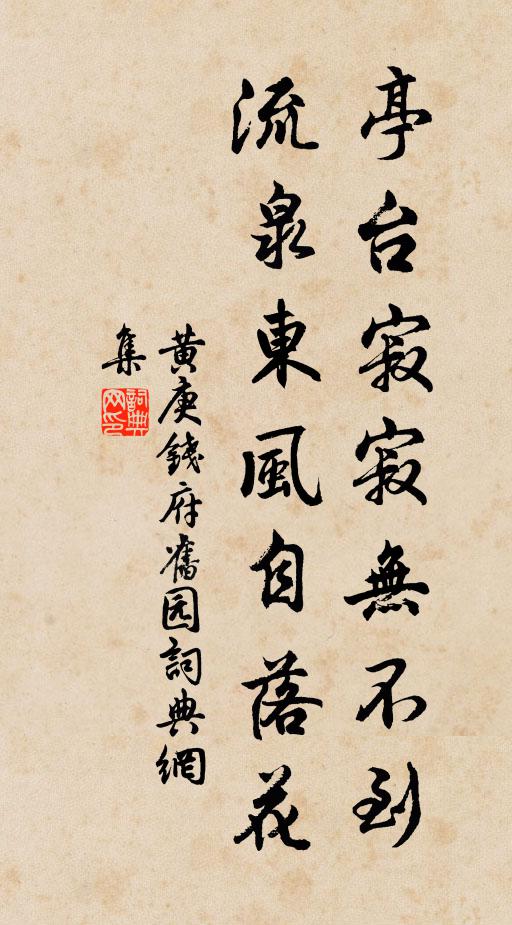 亭台寂寂無不到
流泉東風自落花
黄庚錢府舊园詞典網
集
詞典网印